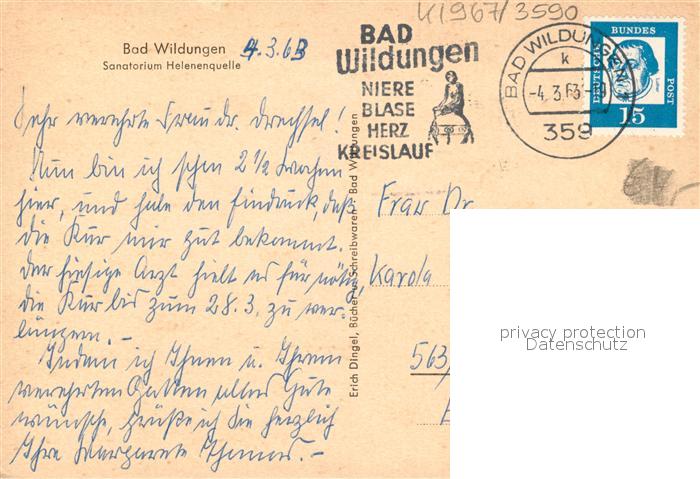 K1967/3590
Bad Wildungen
Sanatorium Helenenquelle
4.3.63
BAD
Wildungen
NIERE
BLASE
HERZ
KREISLAUF
BAD WILDUNGEN
k
-4. 3. 63-
359
DEUTSCHE BUNDESPOST
15
Sehr verehrte Frau Dr. Drechsel!
Nun bin ich schon 2 1/2 Wochen
hier, und habe den Eindruck, daß
die Kur mir gut bekommt.
Der hiesige Arzt hielt es für nötig,
die Kur bis zum 28.3. zu ver-
längern. –
Indem ich Ihnen u. Ihrem
verehrten Gatten alles Gute
wünsche, grüße ich Sie herzlich
Ihre Margarete Thomas. –
Erich Dingel, Bücher u. Schreibwaren Bad Wildungen
Frau Dr.
Karola
563
privacy protection
Datenschutz